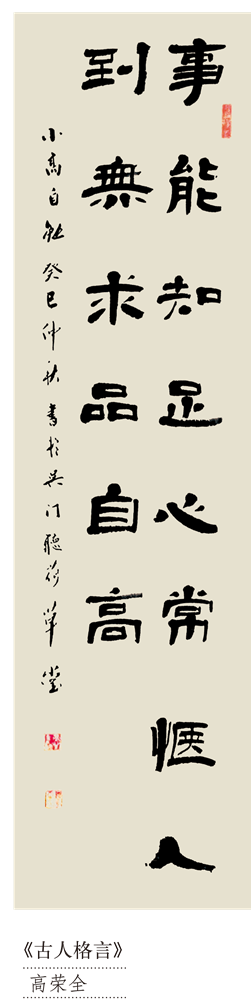 事能知足心常惬人
到無求品自高
小高自勉癸巳仲秋書於吴门聽荷草堂
《古人格言》
高荣全